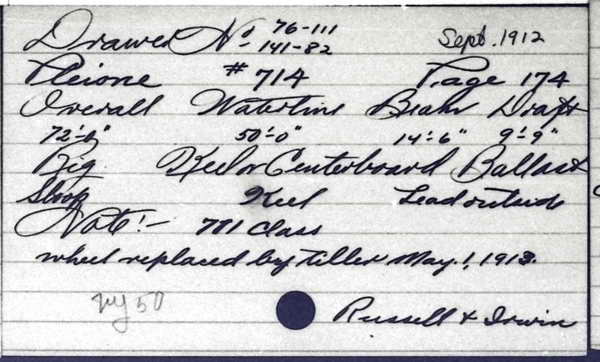 Drawer No. 76-111 Sept. 1912
141-82
Pleione #714 Page 174
Overall Waterline Beam Draft
72'-0" 50'-0" 14'-6" 9'-9"
Rig Keel or Centerboard Ballast
Sloop Keel Lead outside
Note:- 711 Class
wheel replaced by tiller May 1, 1913.
NY 50
Russell & Irwin